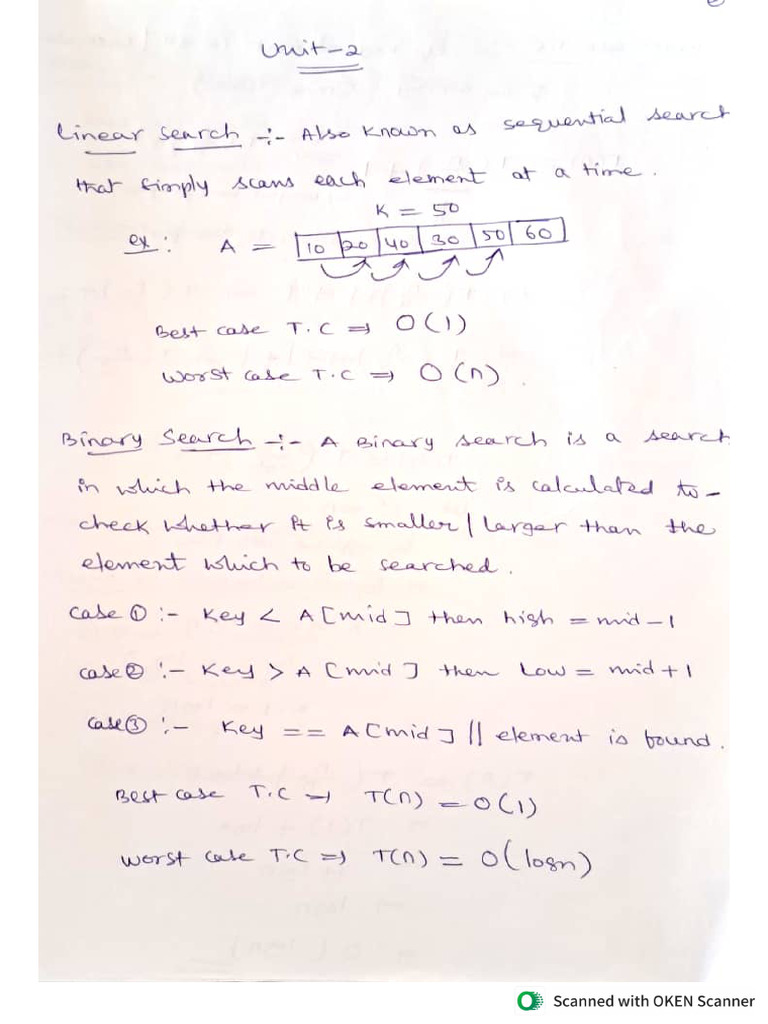 Unit-2
Linear Search :- Also known as sequential search
that simply scans each element at a time.
K = 50
ex: A = 10 20 40 30 50 60
Best case T.C ⇒ O(1)
Worst case T.C ⇒ O(n).
Binary Search :- A Binary search is a search
in which the middle element is calculated to-
check whether it is smaller / larger than the
element which to be searched.
Case ① :- Key < A[mid] then high = mid-1
case ② :- Key > A[mid] then Low = mid+1
Case ③ :- Key == A[mid] || element is found.
Best case T.C ⇒ T(n) = O(1)
Worst case T.C ⇒ T(n) = O(logn)
Scanned with OKEN Scanner